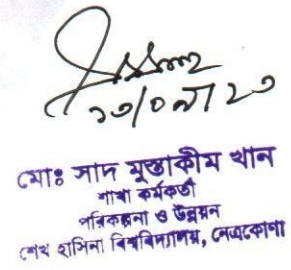 ১৩/০৭/২৩
মোঃ সাদ মুস্তাকীম খান
শাখা কর্মকর্তা
পরিকল্পনা ও উন্নয়ন
শেখ হাসিনা বিশ্ববিদ্যালয়, নেত্রকোণা